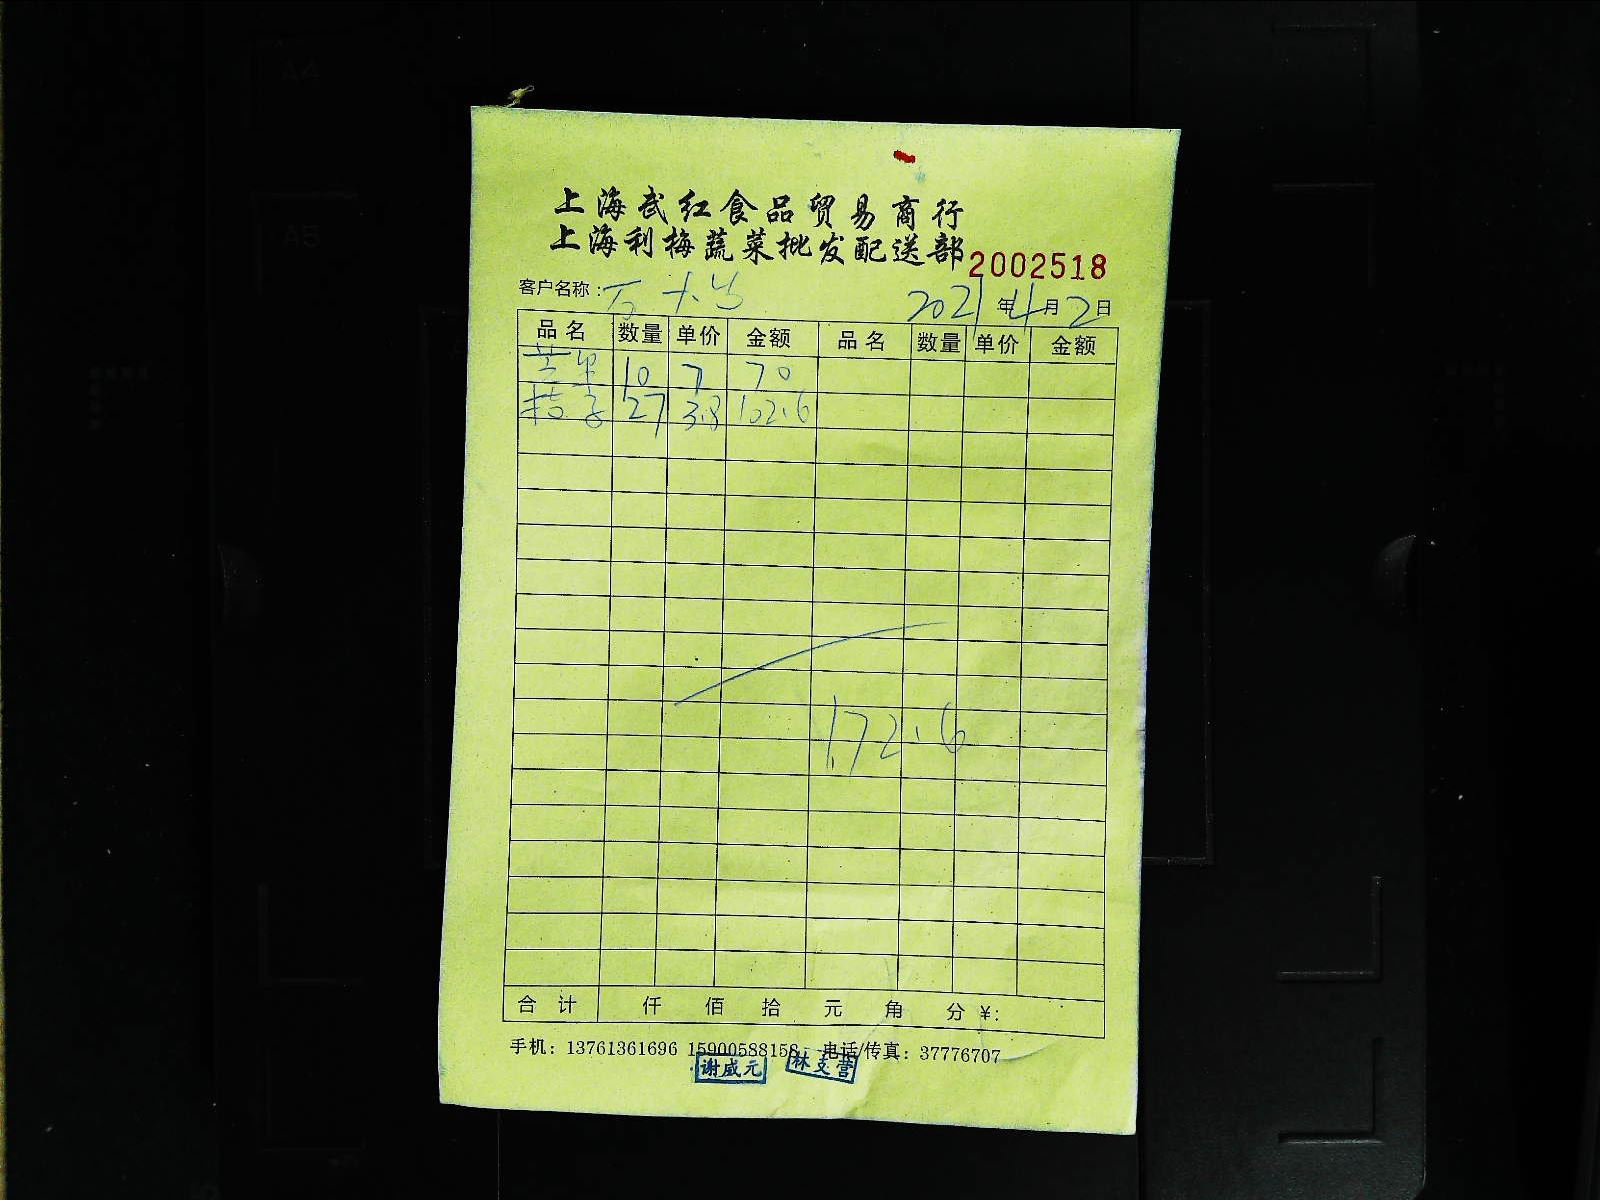 上海武红食品贸易商行
上海利梅蔬菜批发配送部 2002518
客户名称： 2021年4月2日
品名 数量 单价 金额 品名 数量 单价 金额
芒果 10 7 70
桔子 27 3.8 102.6
172.6
合计 仟 佰 拾 元 角 分 ¥:
手机：13761361696 15900588158 电话/传真：37776707
谢威元 林支营
A4
A5